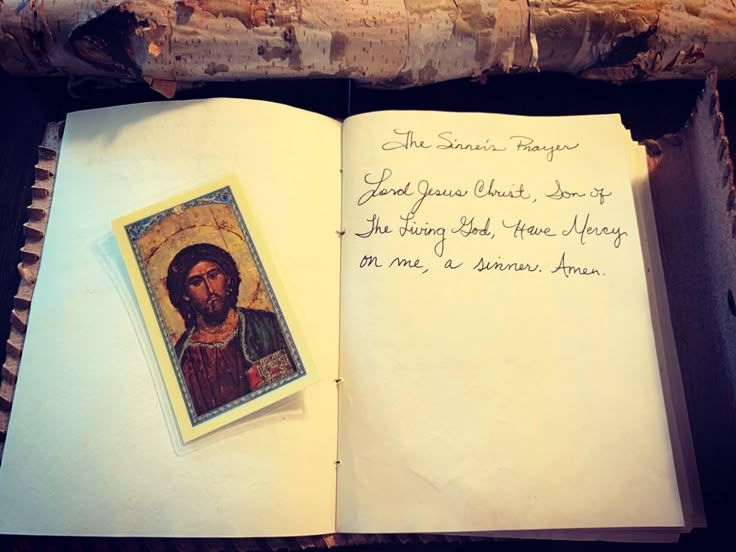 The Sinner's Prayer
Lord Jesus Christ, Son of
The Living God, Have Mercy
on me, a sinner. Amen.